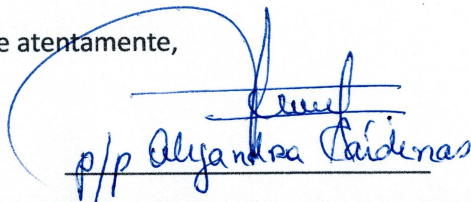 e atentamente,
p/p Alejandra Cárdenas